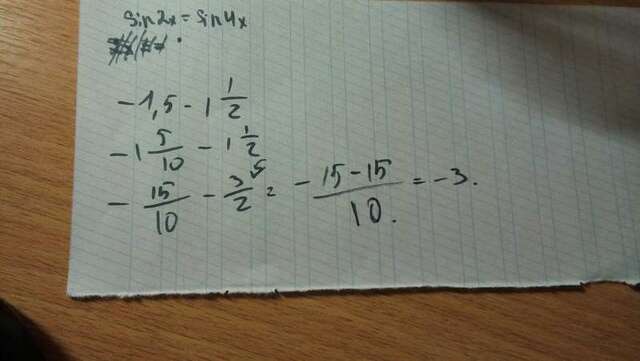 sin2x = sin4x
-1,5 - 1 1/2
-1 5/10 - 1 1/2
- 15/10 - 3/2 5 = - 15-15/10. = -3.